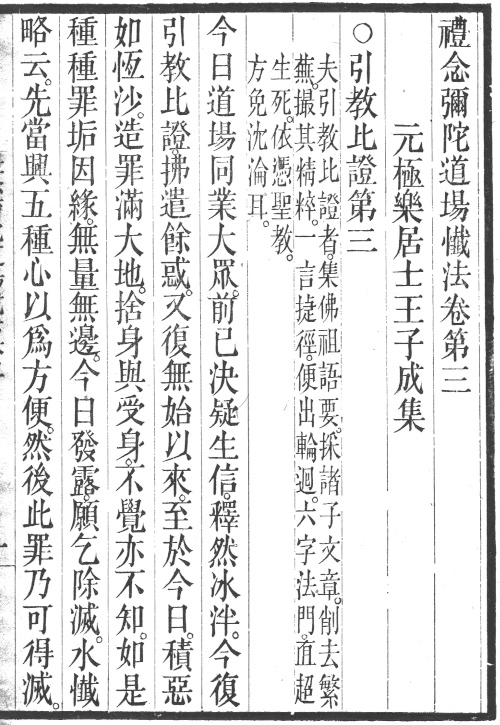 禮念彌陀道場懺法卷第三
元極樂居士王子成集
○引教比證第三
夫引教比證者。集佛祖語要。採諸子文章。削去繁
蕪。撮其精粹。一言捷徑。便出輪迴。六字法門。直超
生死。依憑聖教。
方免沈淪耳。
今日道場同業大眾。前已決疑生信。釋然冰泮。今復
引教比證。拂遣餘惑。又復無始以來。至於今日。積惡
如恆沙。造罪滿大地。捨身與受身。不覺亦不知。如是
種種罪垢因緣。無量無邊。今日發露。願乞除滅。水懺
略云。先當興五種心以爲方便。然後此罪乃可得滅。